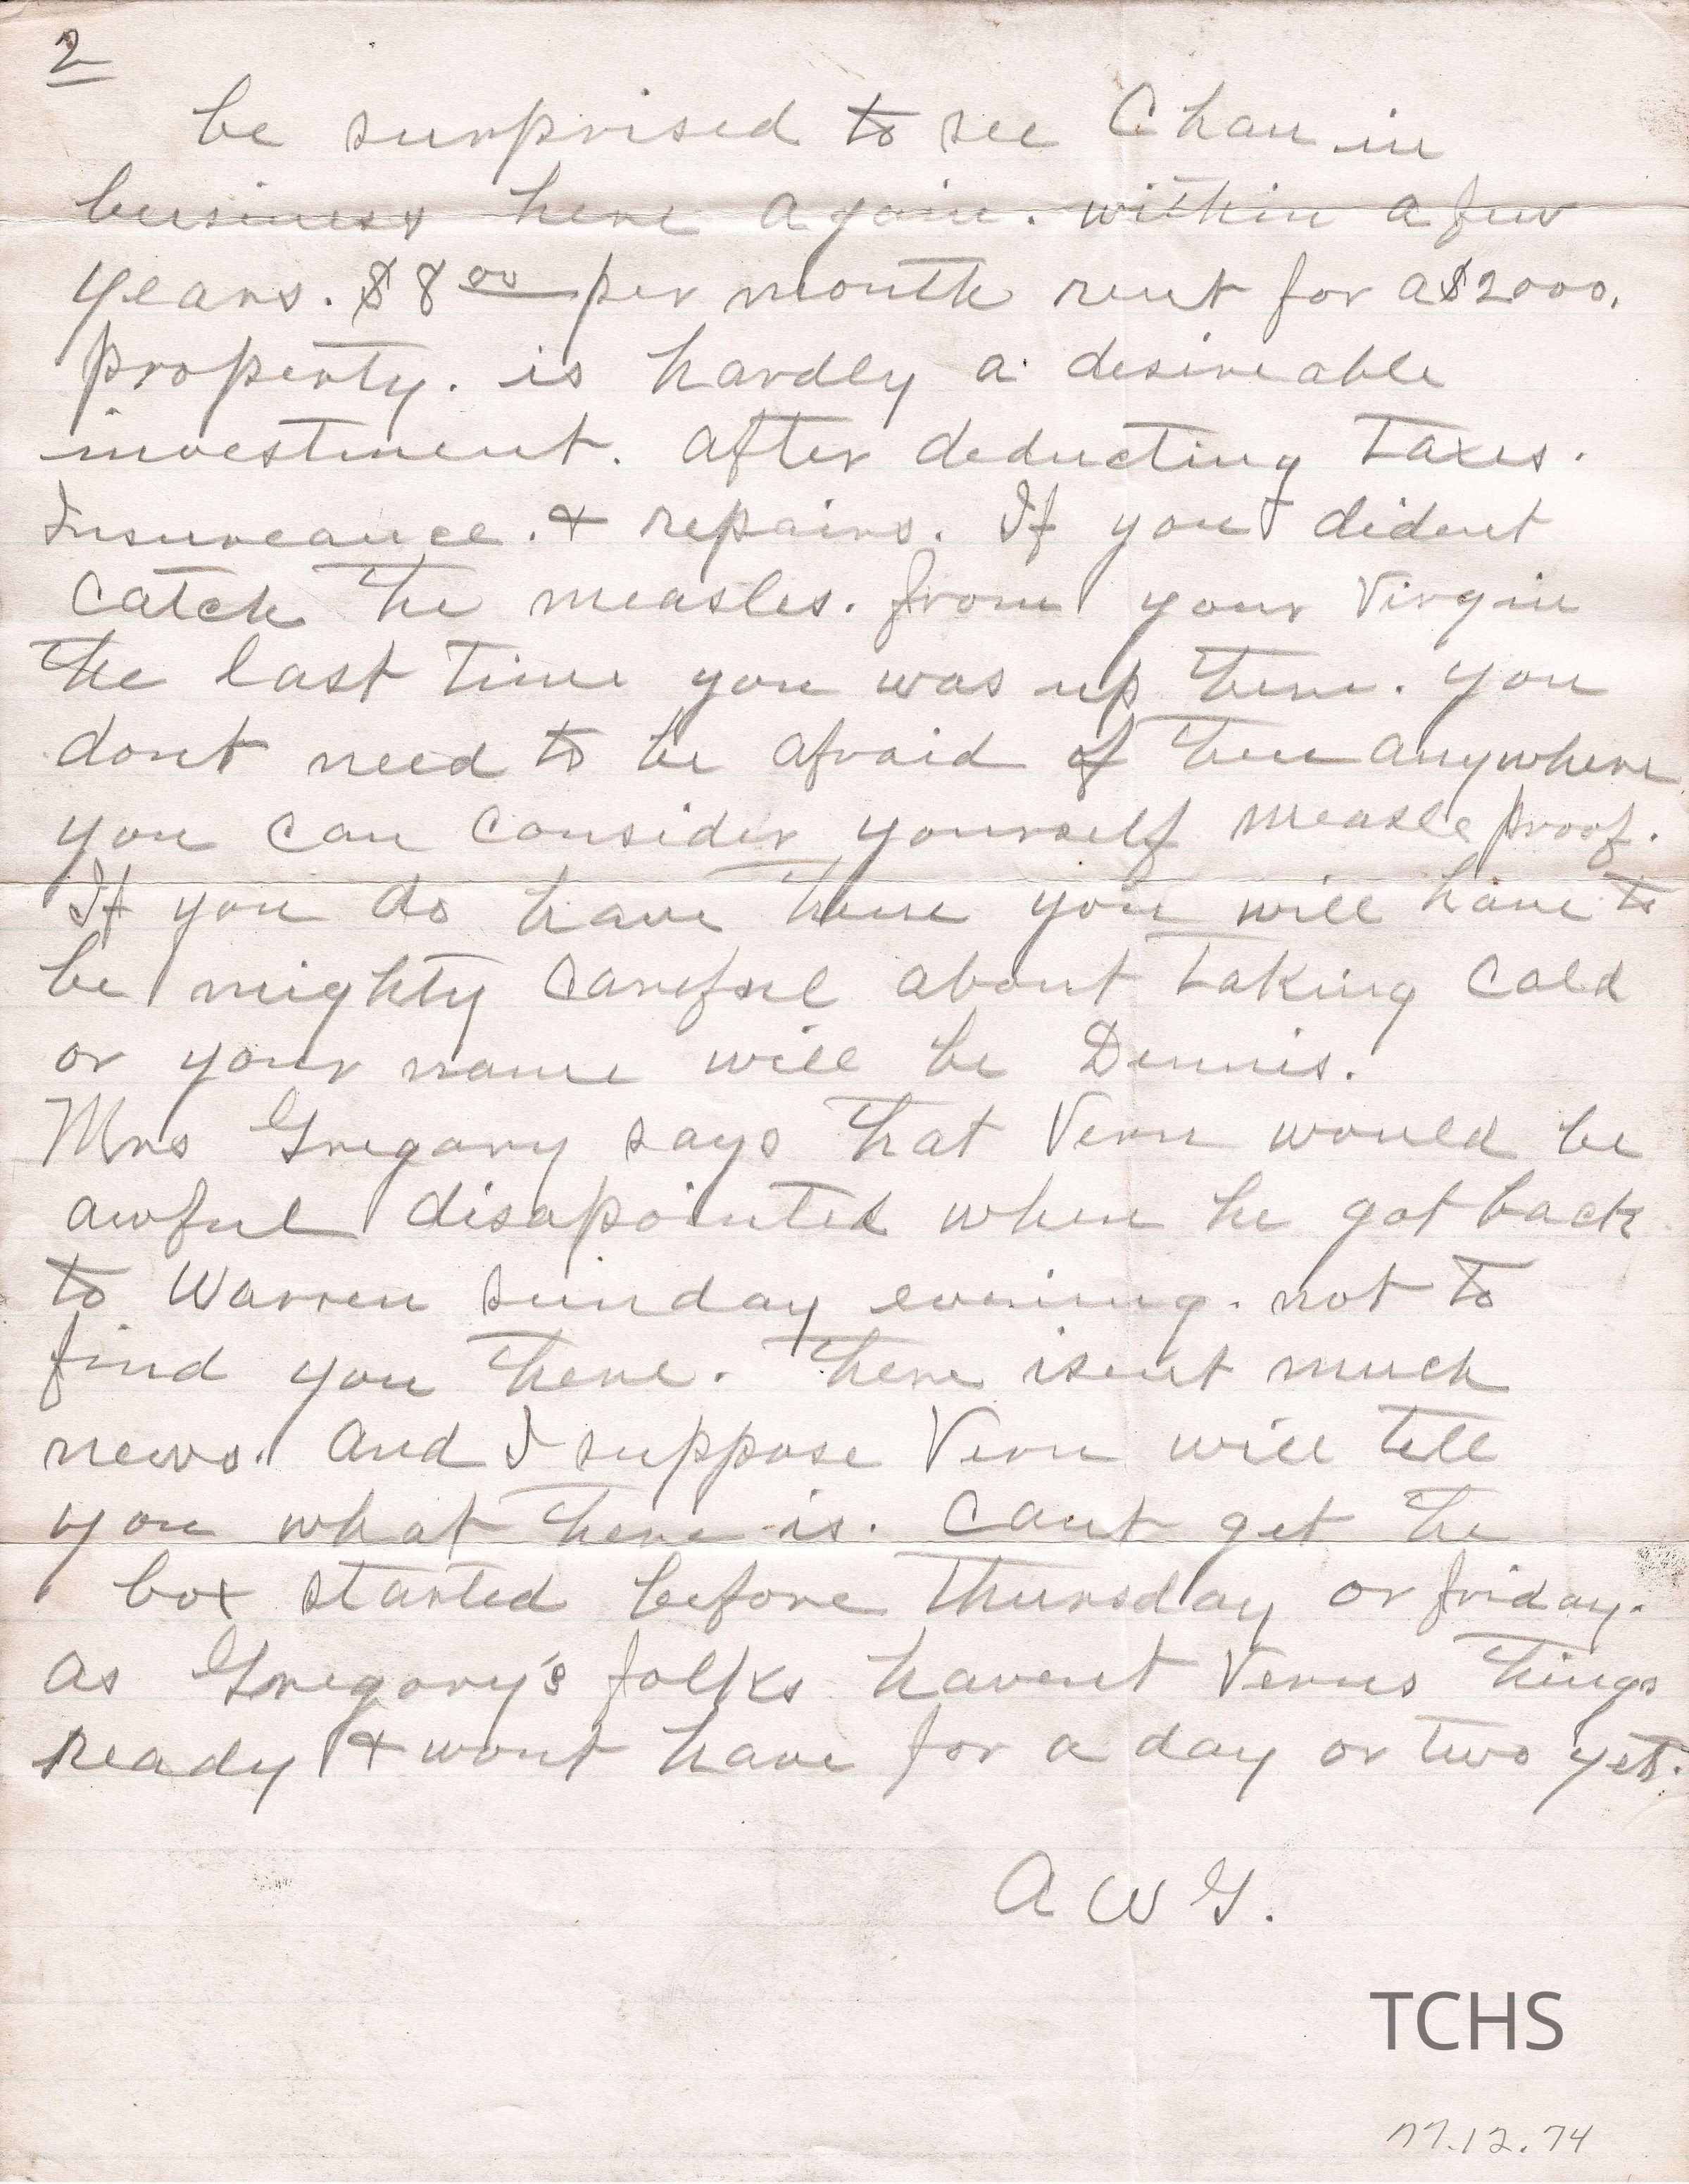 2
be surprised to see Chan in
business here again. within a few
years. $8 00 per month rent for a $2000.
property. is hardly a desireable
investment. after deducting taxes.
Insureance. & repairs. If you dident
catch the measles. from your Virgin
the last time you was up there. you
dont need to be afraid of them anywhere
you can consider yourself measle proof.
If you do have them you will have to
be mighty careful about taking cold
or your name will be Dennis.
Mrs Gregory says that Vern would be
awful disapointed when he got back
to Warren Sunday evening. not to
find you there. there isent much
news. and I suppose Vern will tell
you what there is. Cant get the
box started before Thursday or friday.
as Gregory's folks havent Verns things
ready & wont have for a day or two yet.
A W G.
TCHS
77.12.74